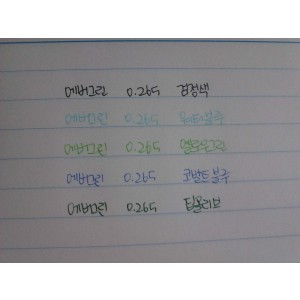 에버그린 0.265 검정색
에버그린 0.265 워터블루
에버그린 0.265 옐로우그린
에버그린 0.265 코발트블루
에버그린 0.265 딥올리브